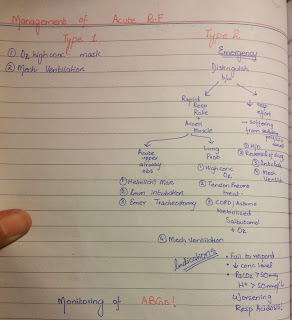 Management of Acute R.F
Type 1
① O2 high conc mask
② Mech Ventilation
Type 2
Emergency
Distinguish
b/w
Rapid
Resp
Rate
+
Access
Muscle
↓ resp
effort
suffering
from
Acute
upper
airway
obs
① Heimlich's Man
② Emer intubation
③ Emer Tracheostomy
Lung
Prob
① High conc
O2
② Tension Pneumo
treat
③ COPD/Asthma
Nebulized
Salbutamol
+ O2
④ Mech Ventilation
① H/O
② Reversal of drug
③ Intubate
④ Mech
Ventilat
Indications
• Fail to respond
• ↓ conc level
• PaCO2 > 50mm
H+ > 50nmol/L
Worsening
Resp Acidosis!
Monitoring of ABGs!